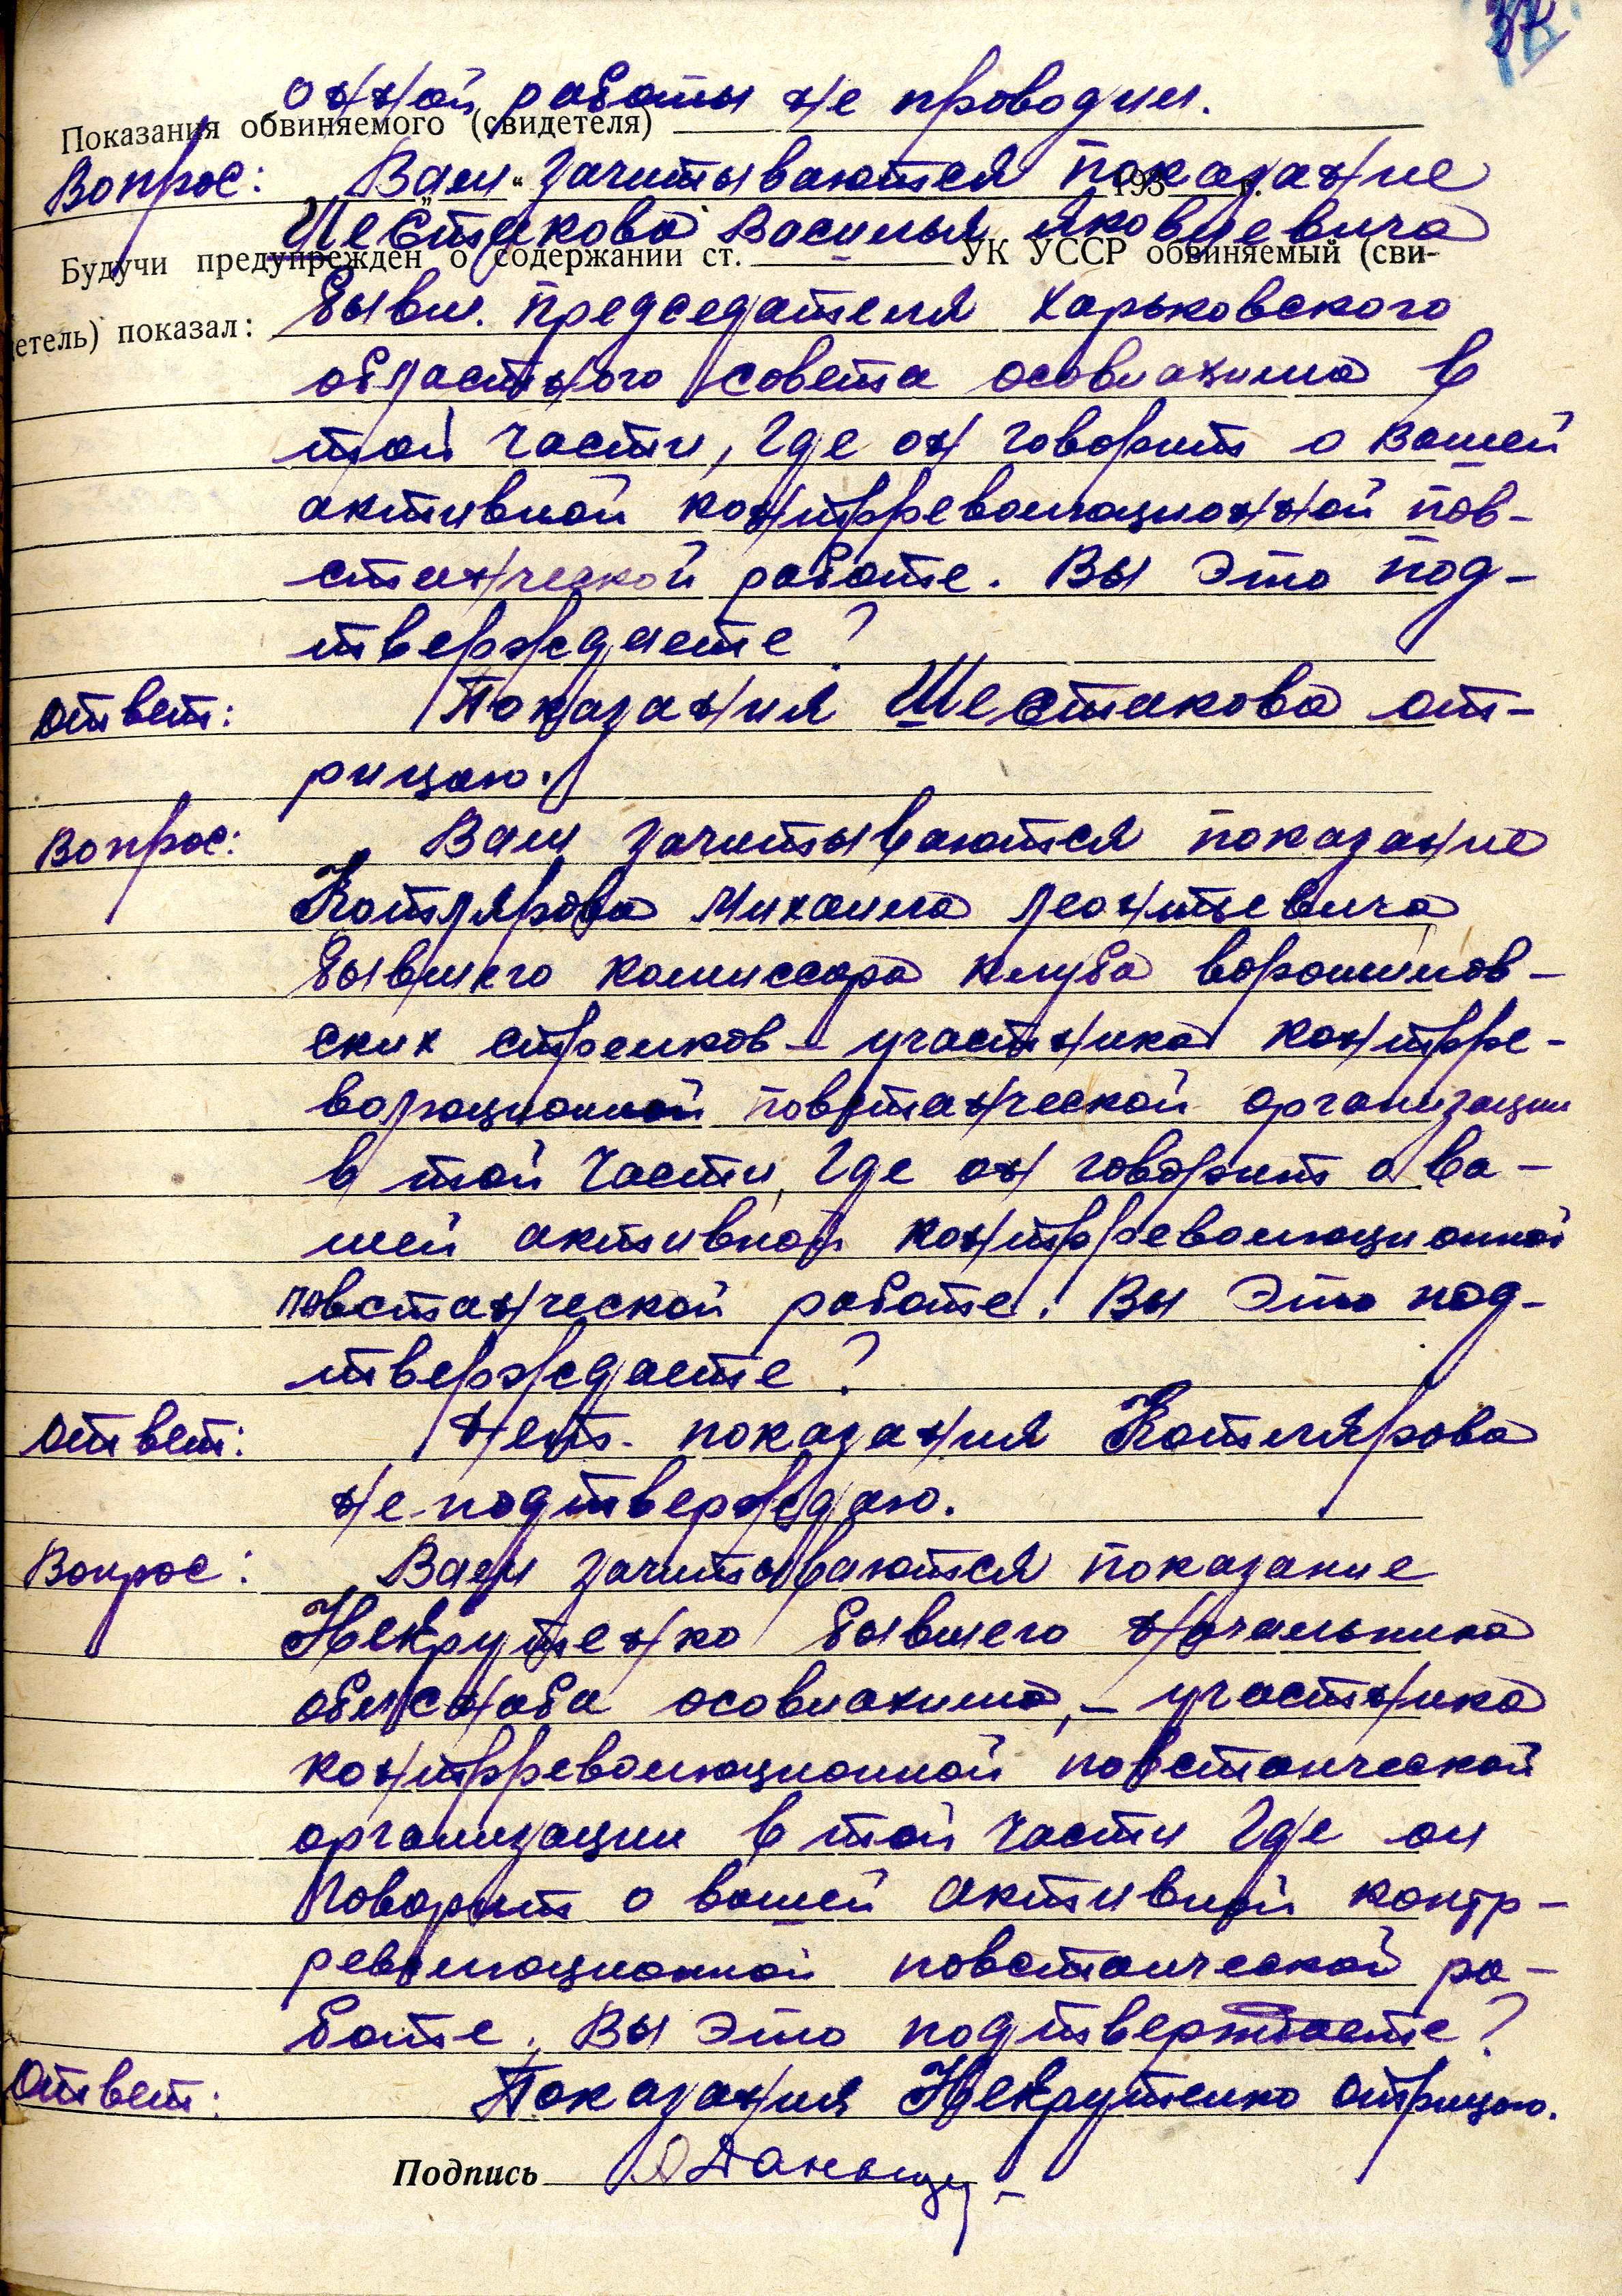 онной работы не проводил.
Показания обвиняемого (свидетеля)
Вопрос: Вам зачитываются показание
193 г.
Шестакова Василия Яковлевича
Будучи предупрежден о содержании ст. УК УССР обвиняемый (сви-
бывш. председателя Харьковского
етель) показал:
областного совета осовиахима в
той части, где он говорит о Вашей
активной контрреволюционной пов-
станческой работе. Вы это под-
тверждаете?
Ответ: Показания Шестакова от-
рицаю.
Вопрос: Вам зачитываются показание
Котлярова Михаила Леонтьевича
бывшего комиссара клуба ворошилов-
ских стрелков – участника контрре-
волюционной повстанческой организации
в той части, где он говорит о ва-
шей активной контрреволюционной
повстанческой работе. Вы это под-
тверждаете?
Ответ: Нет. показания Котлярова
не подтверждаю.
Вопрос: Вам зачитываются показание
Некрутенко бывшего начальника
облснаба осовиахима, – участника
контрреволюционной повстанческой
организации в той части где он
говорит о вашей активной контр-
революционной повстанческой ра-
боте. Вы это подтверждаете?
Ответ: Показания Некрутенко отрицаю.
Подпись